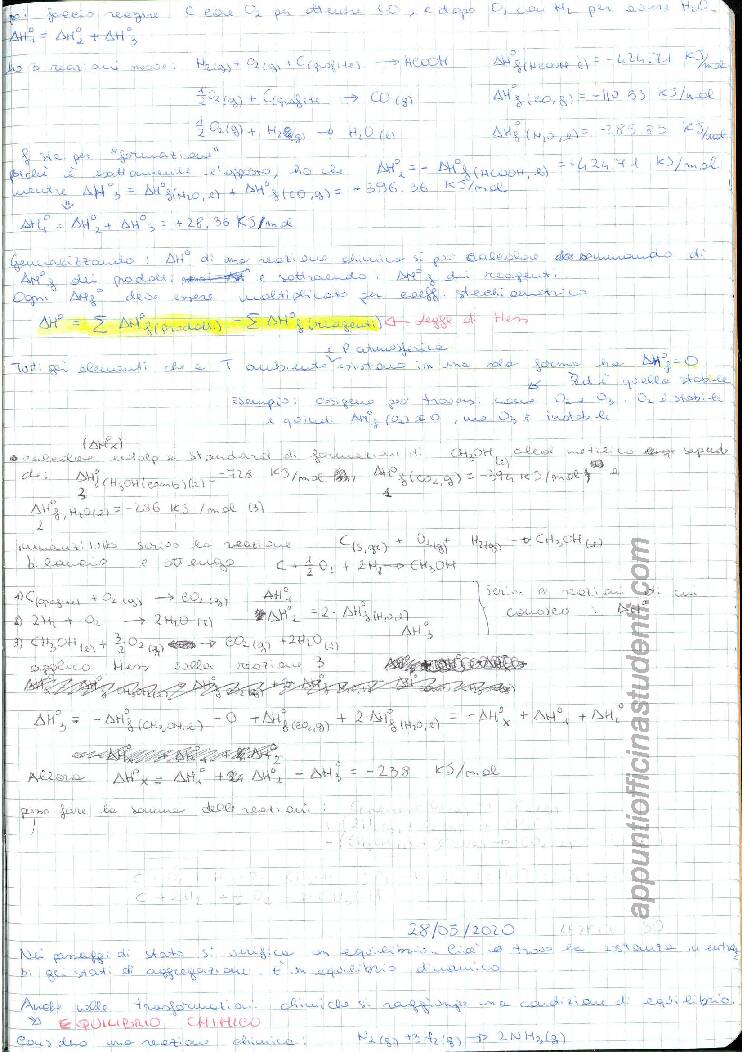 poi faccio reagire C con O₂ per ottenere CO, e dopo O₂ con H₂ per avere H₂O.
ΔH°₁ = ΔH°₂ + ΔH°₃
Ho 3 reazioni nuove: H₂(g) + O₂(g) + C(grafite) → HCOOH ΔH°f(HCOOH, l) = -424.71 KJ/mol
½O₂(g) + C grafite → CO(g) ΔH°f(CO, g) = -110.53 KJ/mol
½O₂(g) + H₂(g) → H₂O(l) ΔH°f(H₂O, l) = -285.83 KJ/mol
f sta per "formazione"
poiché è esattamente l'opposto, ho che ΔH°₂ = -ΔH°f(HCOOH, l) = +424.71 KJ/mol
mentre ΔH°₃ = ΔH°f(H₂O, l) + ΔH°f(CO, g) = -396.36 KJ/mol
ΔH°₁ = ΔH°₂ + ΔH°₃ = +28,36 KJ/mol
Generalizzando: ΔH° di una reazione chimica si può calcolare sommando di
ΔH°f dei prodotti e sottraendo ΔH°f dei reagenti.
Ogni ΔHf° deve essere moltiplicato per coeff. stechiometrico
ΔH° = Σ ΔH°f(prodotti) - Σ ΔH°f(reagenti) ← Legge di Hess
e P atmosferica
Tutti gli elementi che a T ambiente esistono in una sola forma ha ΔH°f = 0
Ed è quella stabile
Esempio: ossigeno può trovarsi come O₂ e O₃. O₂ è stabile
e quindi ΔH°f(O₂) = 0, ma O₃ è instabile
(ΔH°x)
• calcolare entalpia standard di formazione di CH₃OH(l) alcol metilico sapendo
che: ΔH°(CH₃OH(comb)(l)) = -726 KJ/mol, ΔH°f(CO₂,g) = -394 KJ/mol e
3 1
ΔH°f, H₂O(l) = -286 KJ/mol (3)
2
Innanzitutto scrivo la reazione C(s,gr) + O₂(g) + H₂(g) → CH₃OH(l)
bilancio e ottengo C + ½O₂ + 2H₂ → CH₃OH
1) C(grafite) + O₂(g) → CO₂(g) ΔH°₁
2) 2H₂ + O₂ → 2H₂O(l) ΔH°₂ = 2·ΔH°f(H₂O,l)
scrivo le reazioni di cui
conosco
3) CH₃OH(l) + 3/2 O₂(g) → CO₂(g) + 2H₂O(l) ΔH°₃
applico Hess sulla reazione 3
ΔH°₃ = -ΔH°f(CH₃OH, l) - 0 + ΔH°f(CO₂,g) + 2·ΔH°f(H₂O, l) = -ΔH°x + ΔH°₁ + ΔH₂°
Allora ΔH°x = ΔH₁° + ΔH°₂ - ΔH°₃ = -238 KJ/mol
posso fare la somma delle reazioni:
28/05/2020
Nei passaggi di stato si verifica un equilibrio in cui si trova la sostanza in entram
bi gli stati di aggregazione. È un equilibrio dinamico
Anche nelle trasformazioni chimiche si raggiunge una condizione di equilibrio.
EQUILIBRIO CHIMICO
Considero una reazione chimica: N₂(g) + 3H₂(g) → 2NH₃(g)
appuntiofficinastudenti.com